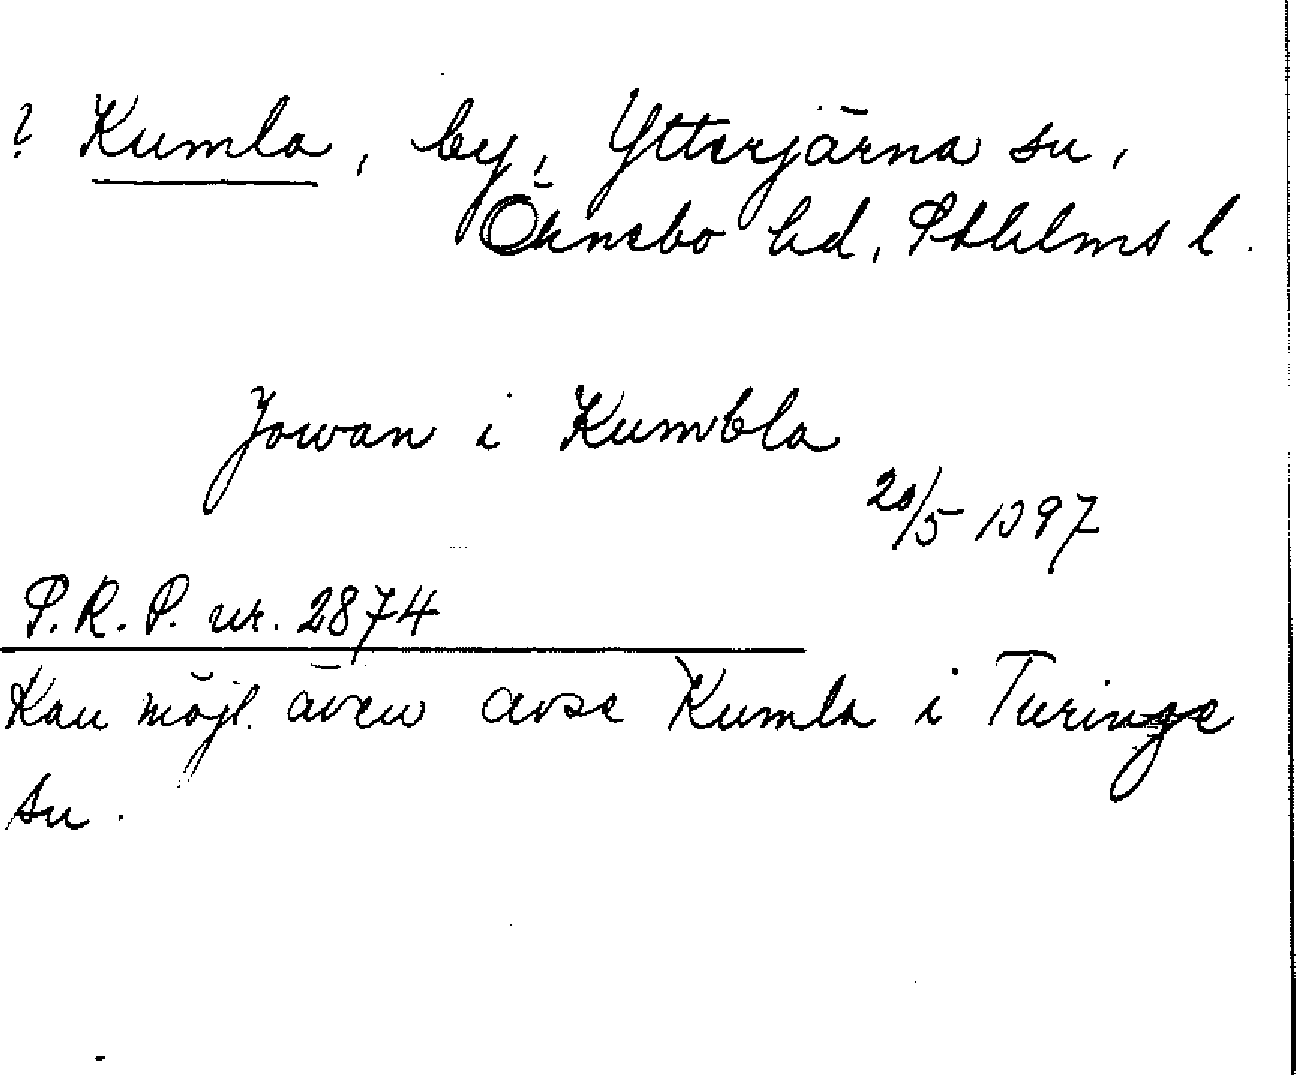 ? Kumla, by, Ytterjärna sn,
Öknebo hd, Sthlms l.
Jowan i Kumbla
20/5 1397
S.R.P. nr. 2874
Kan möjl. även avse Kumla i Turinge
sn.